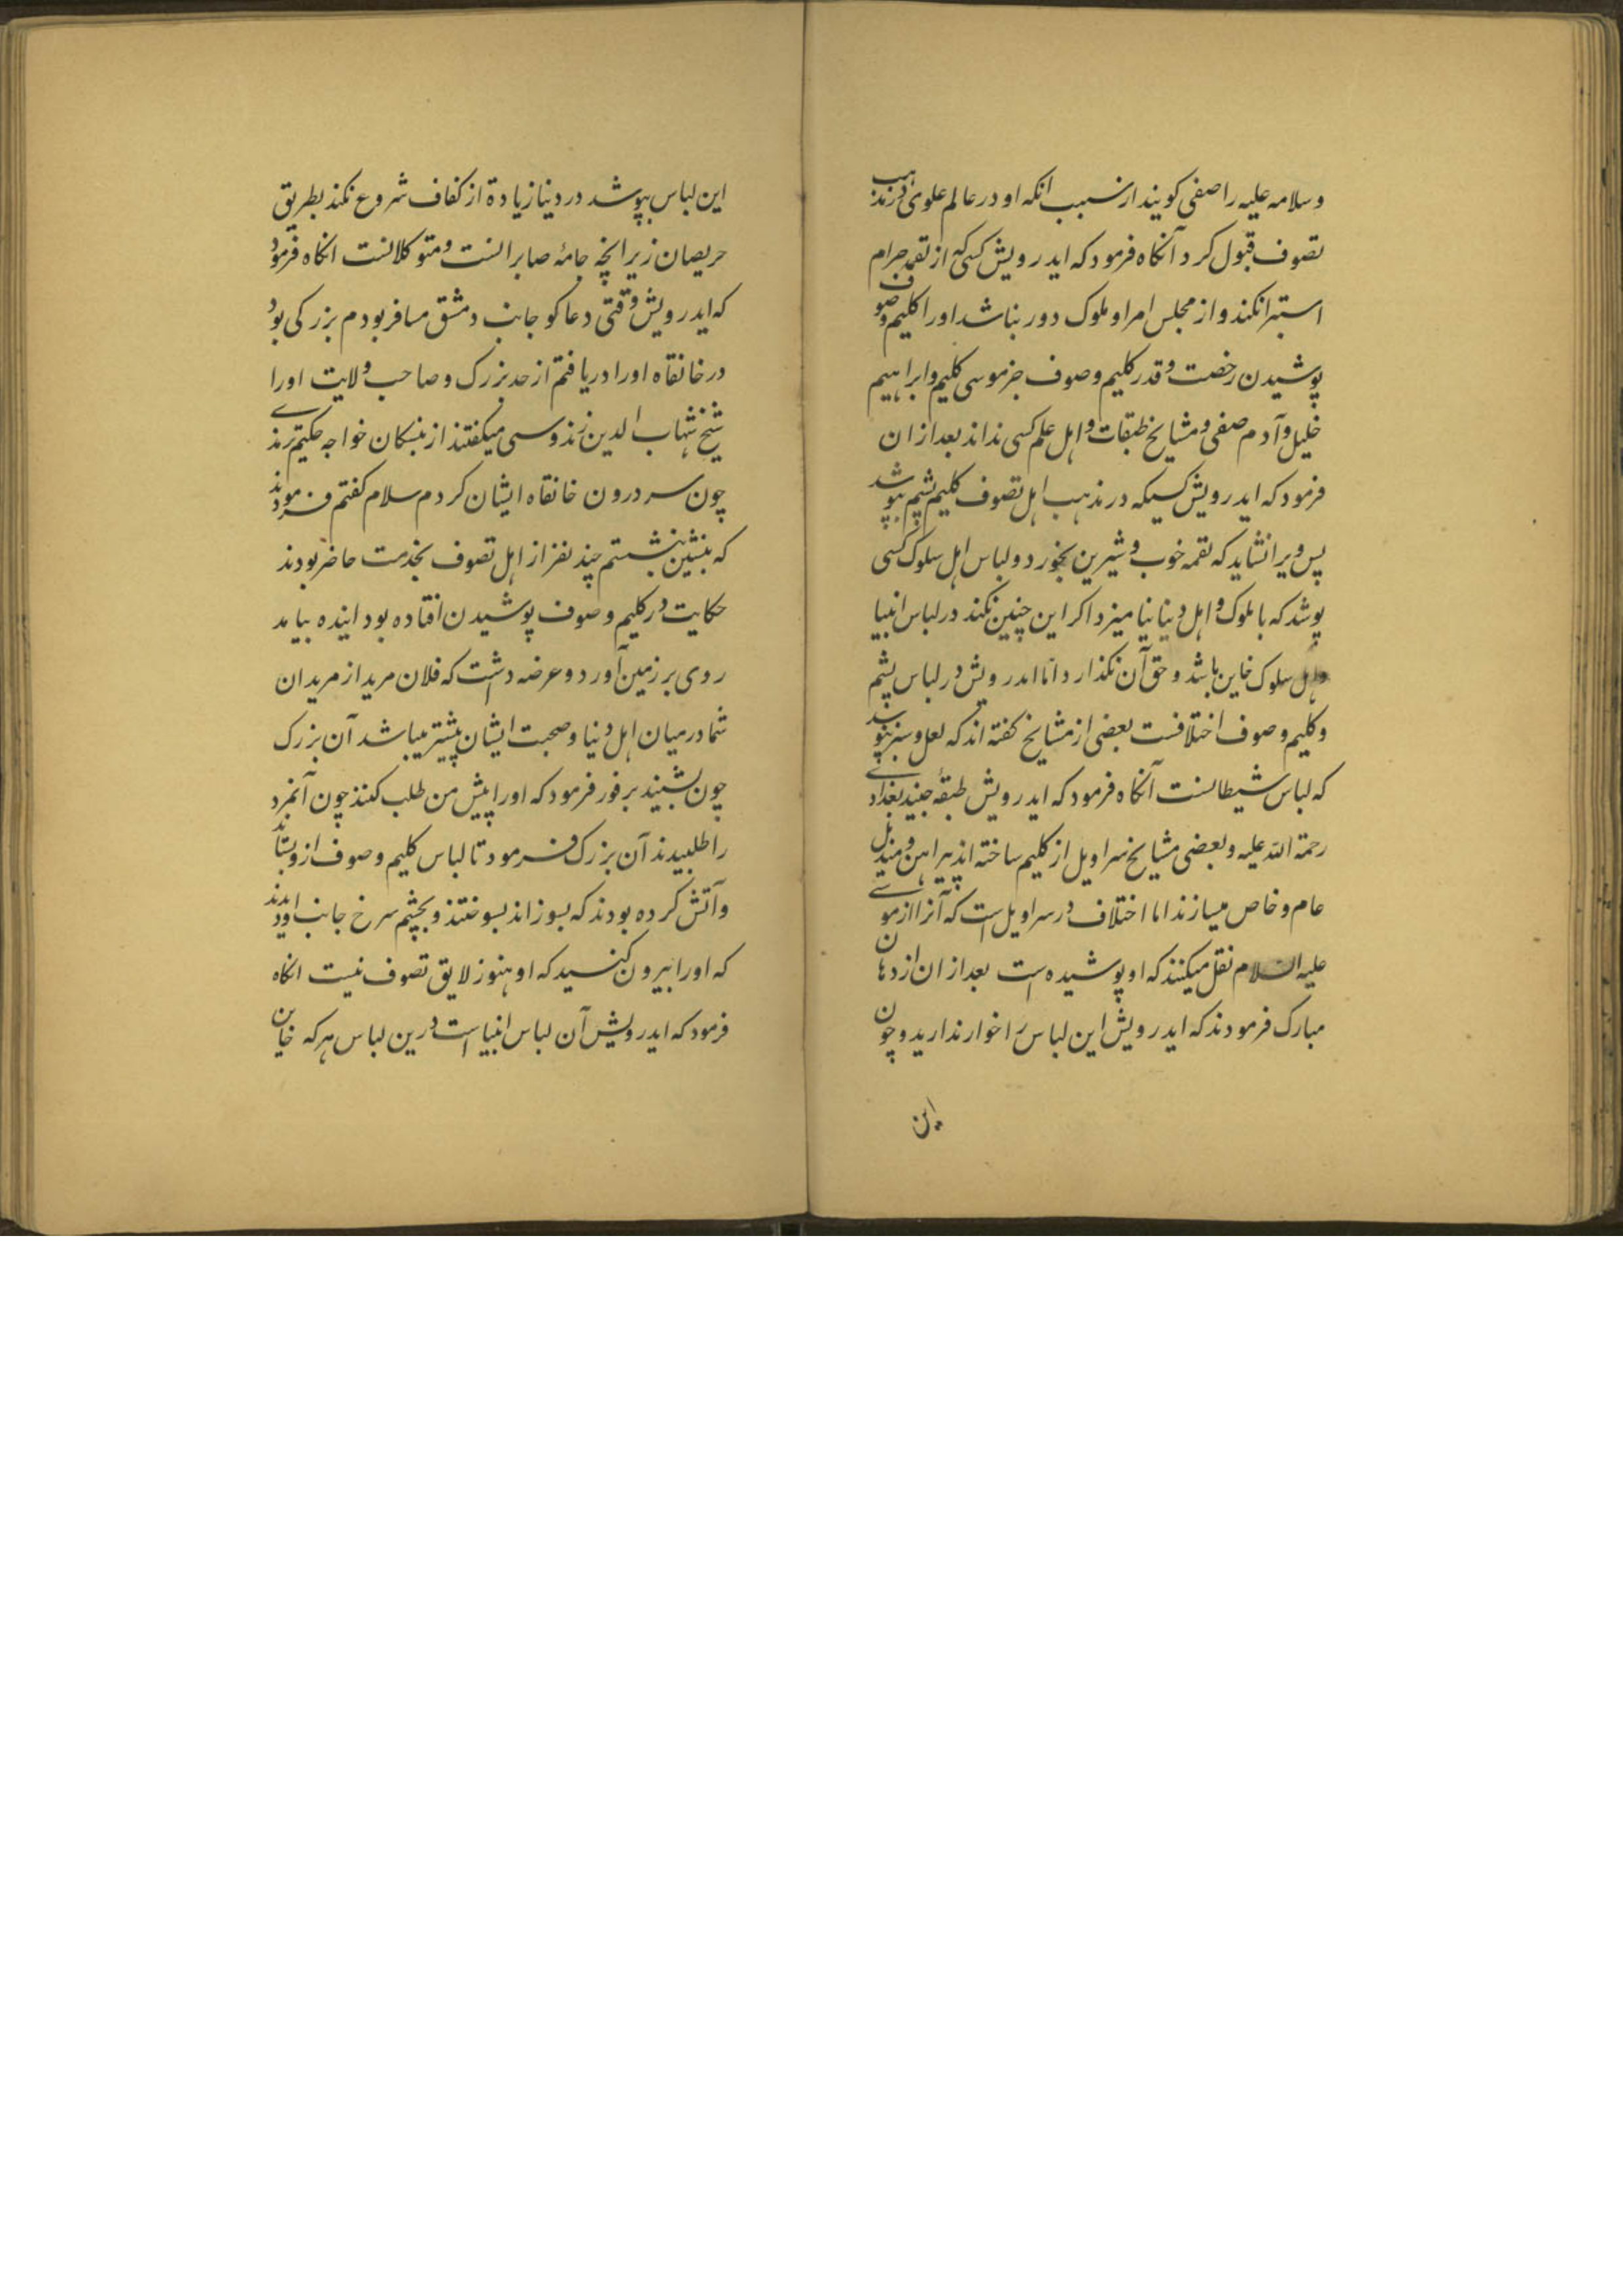 وسلامه علیه را صفی کویند از سبب انکه او در عالم علوی در مذهب
تصوف قبول کرد آنکاه فرمود که ایدرویش کسی که از لقمه حرام
استبرا نکند و از مجلس امرا و ملوک دور نباشد او را کلیم و صوف
پوشیدن رخصت و قدر کلیم و صوف جز موسی کلیم و ابراهیم
خلیل و آدم صفی و مشایخ طبقات و اهل علم کسی نداند بعد ازان
فرمود که ایدرویش کسیکه در مذهب اهل تصوف کلیم پشم بپوشد
پس ویرا نشاید که لقمه خوب و شیرین بخورد و لباس اهل سلوک کسی
پوشد که با ملوک و اهل دنیا نیامیزد اکر این چنین نکند در لباس انبیا
و اهل سلوک خاین باشد و حق آن نکذارد اما ایدرویش در لباس پشم
و کلیم و صوف اختلافست بعضی از مشایخ کفته اند که لعل و سبز نپوشد
که لباس شیطانست آنکاه فرمود که ایدرویش طبقهٔ جنید بغدادی
رحمة الله علیه و بعضی مشایخ سراویل از کلیم ساخته اند پیراهن و مندیل
عام و خاص میسازند اما اختلاف در سراویل است که آنرا از موسی
علیه السلام نقل میکنند که او پوشیده است بعد ازان از دهان
مبارک فرمودند که ایدرویش این لباس را خوار ندارید و چون
این
این لباس بپوشد در دنیا زیادة از کفاف شروع نکند بطریق
حریصان زیرا نچه جامهٔ صابرانست و متوکلانست انکاه فرمود
که ایدرویش وقتی دعاکو جانب دمشق مسافر بودم بزرکی بود
در خانقاه او را دریافتم از حد بزرک و صاحب ولایت او را
شیخ شهاب الدین زندوسی میکفتند از نبسکان خواجه حکیم ترمذی
چون سر درون خانقاه ایشان کردم سلام کفتم فرمودند
که بنشین بنشستم چند نفر از اهل تصوف بخدمت حاضر بودند
حکایت در کلیم و صوف پوشیدن افتاده بود اینده بیامد
روی بر زمین آورد و عرضه داشت که فلان مرید از مریدان
شما در میان اهل دنیا و صحبت ایشان پیشتر میباشد آن بزرک
چون بشنید بر فور فرمود که او را پیش من طلب کنند چون آنمرد
را طلبیدند آن بزرک فرمود تا لباس کلیم و صوف ازو بستانند
و آتش کرده بودند که بسوزاند بسوختند و بچشم سرخ جانب او دیدند
که او را بیرون کنید که او هنوز لایق تصوف نیست انکاه
فرمود که ایدرویش آن لباس انبیا است درین لباس هر که خاین